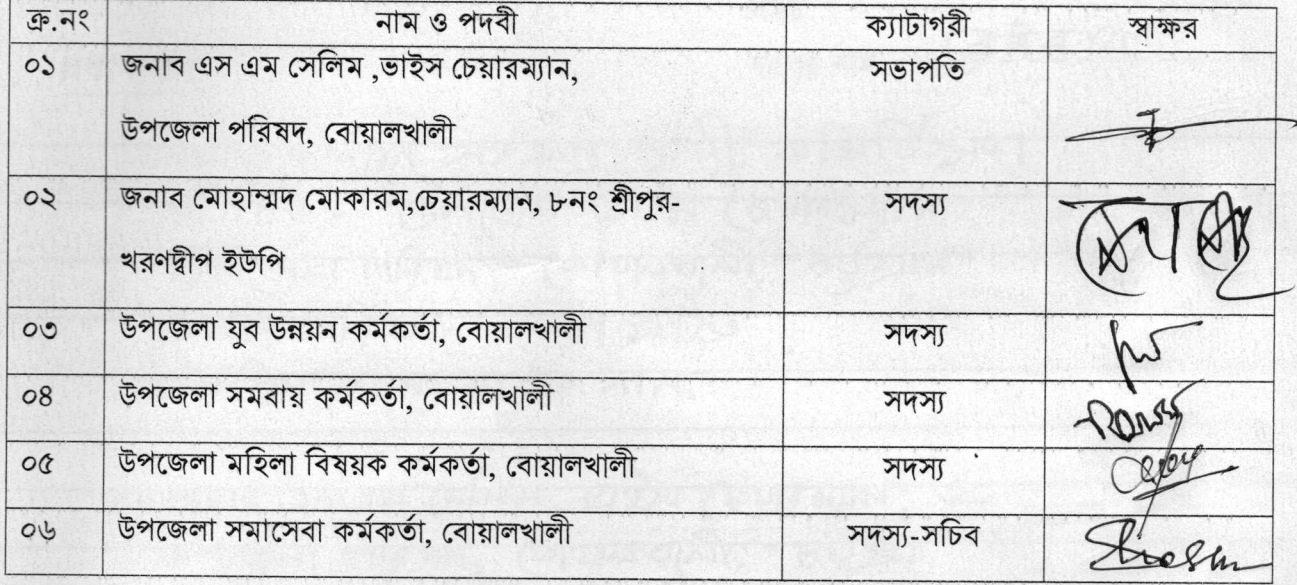 ক্র.নং নাম ও পদবী ক্যাটাগরী স্বাক্ষর
০১ জনাব এস এম সেলিম ,ভাইস চেয়ারম্যান, সভাপতি
উপজেলা পরিষদ, বোয়ালখালী
০২ জনাব মোহাম্মদ মোকারম,চেয়ারম্যান, ৮নং শ্রীপুর- সদস্য
খরণদ্বীপ ইউপি
০৩ উপজেলা যুব উন্নয়ন কর্মকর্তা, বোয়ালখালী সদস্য
০৪ উপজেলা সমবায় কর্মকর্তা, বোয়ালখালী সদস্য
০৫ উপজেলা মহিলা বিষয়ক কর্মকর্তা, বোয়ালখালী সদস্য
০৬ উপজেলা সমাসেবা কর্মকর্তা, বোয়ালখালী সদস্য-সচিব